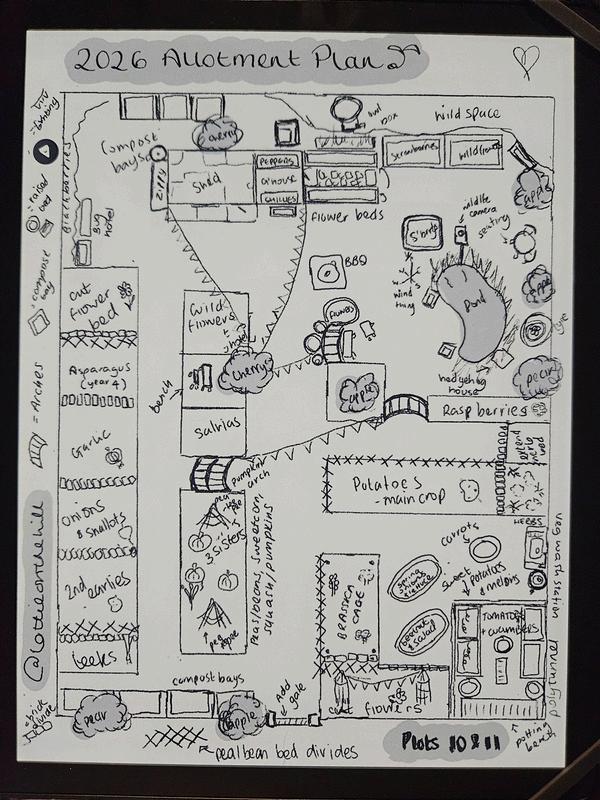 2026 Allotment Plan
= bunting
= raised bed
= compost bay
= Arches
@lottieonthehill
Blackberries
compost bays
cherry
owl box
wild space
Zippy
Shed
PEPPERS
G'HOUSE
CHILLIES
strawberries
wildflowers
apple
flower beds
Bug hotel
S'berry
wildlife camera
seating
BBQ
wind thing
Pond
apple
pear
hedgehog house
cut flower bed
Wild flowers
bench
cherry
apple
Raspberries
Asparagus (year 4)
salvias
Pumpkin arch
Garlic
Potatoes - maincrop
HERBS
veg wash station
onions & shallots
3 sisters
Peas/beans, sweetcorn, squash/pumpkins
BRASSICA CAGE
carrots
spring onions & lettuce
sweet potatoes & melons
beetroot & salad
2nd earlies
TOMATOES + cucumbers
leeks
compost bays
Add gate
cut flowers
pear
apple
= brick divide
potting bench
pea/bean bed divides
Plots 10 & 11